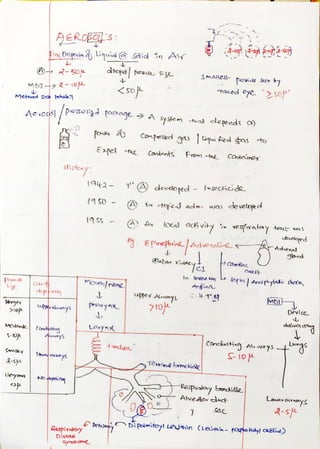 AEROSOL'S:
Fine Dispersion of Liquid @ solid in Air
Ⓐ → 2-50µ droplet/particle size
MDI → 2-10µ <50µ
Metered Dose Inhaler
smallest particle seen by
naked eye "≥50µ"
Aerosol / pressurized package → A system that depends on
power of compressed gas / liquified gas to
Expel the contents from the container
History:
1942 - 1st Ⓐ developed - Insecticide
1950 - Ⓐ for topical adm. was developed
1955 - Ⓐ for local activity in respiratory tract was
developed
eg. Epinephrine / Adrenaline
Adrenal
gland
Kidney
CI
cardiac
arrest
Angina
septic / Anaphylatic shock
Particle
size
Site of
deposition
larger
>10µ
upper airways
5-10µ
Conducting
Airways
Smaller
2-5µ
Lower airways
Mouth/nose
pharynx
Larynx
trachea
upper Airways
>10µ
MDI
Device
Lungs
Conducting Airways
5-10µ
Terminal bronchiole
Respiratory bronchiole
Alveolar duct
sac
Lower airways
2-5µ
Respiratory
Distress
syndrome
Dipalmitoyl Lecithin (Lecithin - phosphatidyl choline)